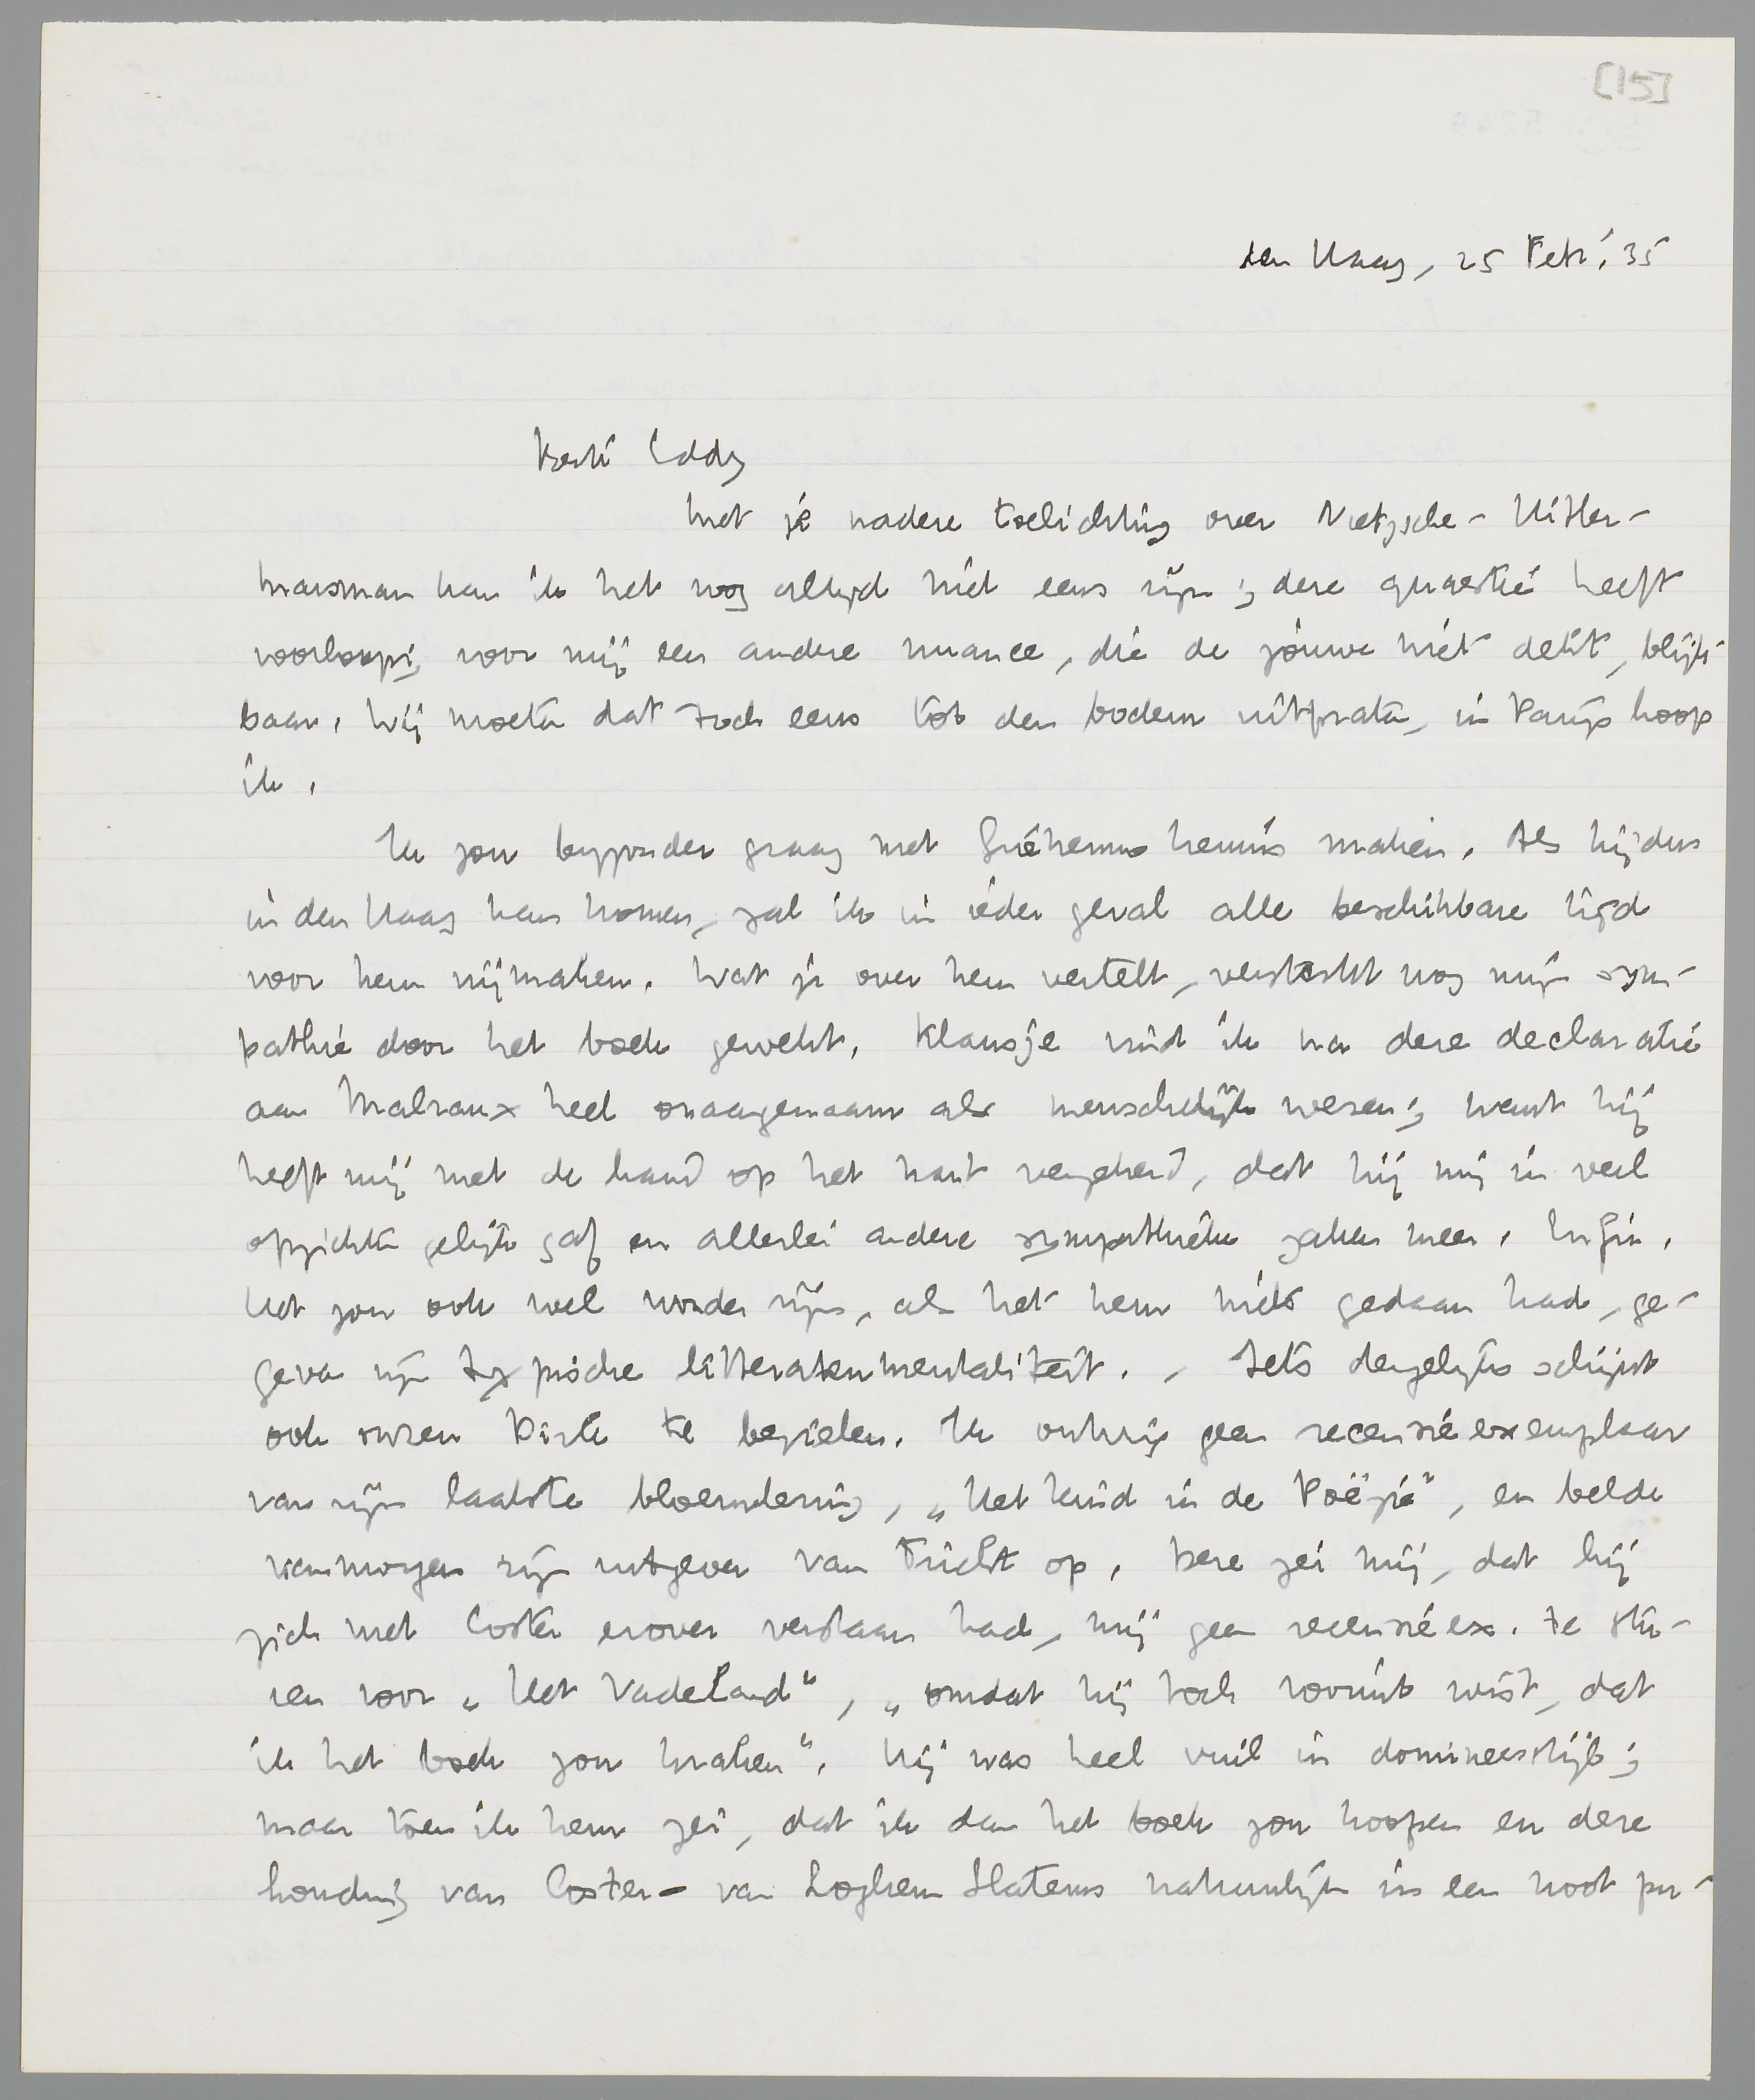 [15]
den Haag, 25 Febr. '35
Beste Eddy
Met je nadere toelichting over Nietzsche-Hitler-
Marsman kan ik het nog altijd niet eens zijn; deze quaestie heeft
voorloopig voor mij een andere nuance, die de jouwe niet dekt, blijk-
baar. Wij moeten dat toch eens tot den bodem uitpraten, in Parijs hoop
ik.
Ik zou bijzonder graag met Guéhenno kennis maken. Als hij dus
in den Haag kan komen, zal ik in ieder geval alle beschikbare tijd
voor hem vrijmaken. Wat je over hem vertelt, versterkt nog mijn sym-
pathie door het boek gewekt. Klausje vind ik na deze declaratie
aan Malraux heel onaangenaam als menschelijk wezen; want hij
heeft mij met de hand op het hart verzekerd, dat hij mij in veel
opzichten gelijk gaf en allerlei andere sympathieke zaken meer. Enfin.
Het zou ook wel wonder zijn, als het hem niets gedaan had, ge-
geven zijn typische litteratenmentaliteit. - Iets dergelijks schijnt
ook onzen Dirk te bezielen. Ik ontving geen recensieexemplaar
van zijn laatste bloemlezing, „Het Kind in de Poëzie", en belde
vanmorgen zijn uitgever van Tricht op. Deze zei mij, dat hij
zich met Coster erover verstaan had, mij geen recensieex. te stu-
ren voor „Het Vaderland", „omdat hij toch vooruit wist, dat
ik het boek zou kraken". Hij was heel vuil in domineesstijl;
maar toen ik hem zei, dat ik dan het boek zou koopen en deze
houding van Coster-van Loghem Slaterus natuurlijk in een noot pu-